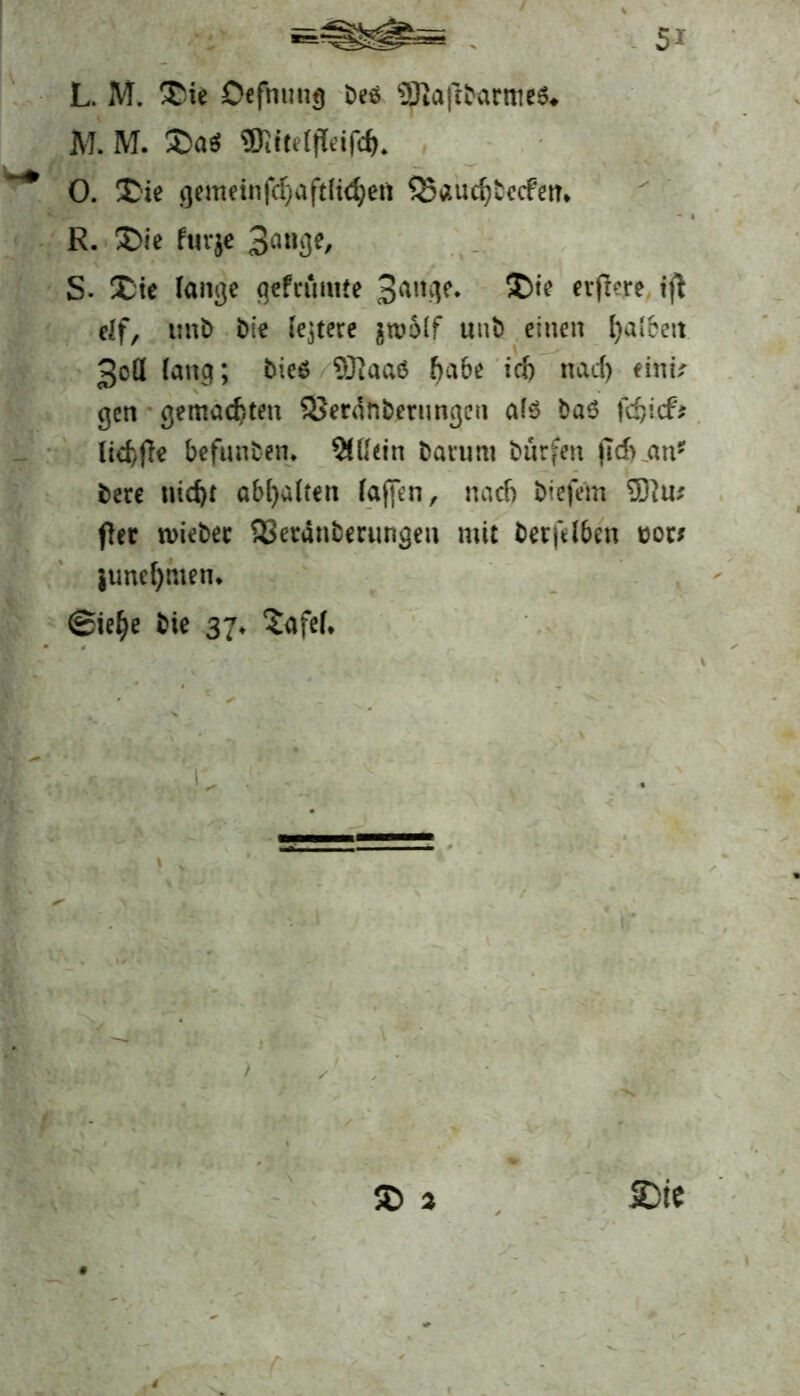 51
L. M. Die Oefnung des Mastdarmes.
M. M. Das Mitelfleisch.
O. Die gemeinschaftlichen Bauchdecken.
R. Die kurze Zange,
S. Die lange gekrümte Zange. Die erstere ist
elf, und die leztere zwölf und einen halben
Zoll lang; dies Maas habe ich nach eini-
gen gemachten Veränderungen als das schick-
lichste befunden. Allein darum dürfen sich an-
dere nicht abhalten lassen, nach diesem Mu-
ster wieder Veränderungen mit derselben vor-
zunehmen.
Siehe die 37. Tafel.
D 2
Die